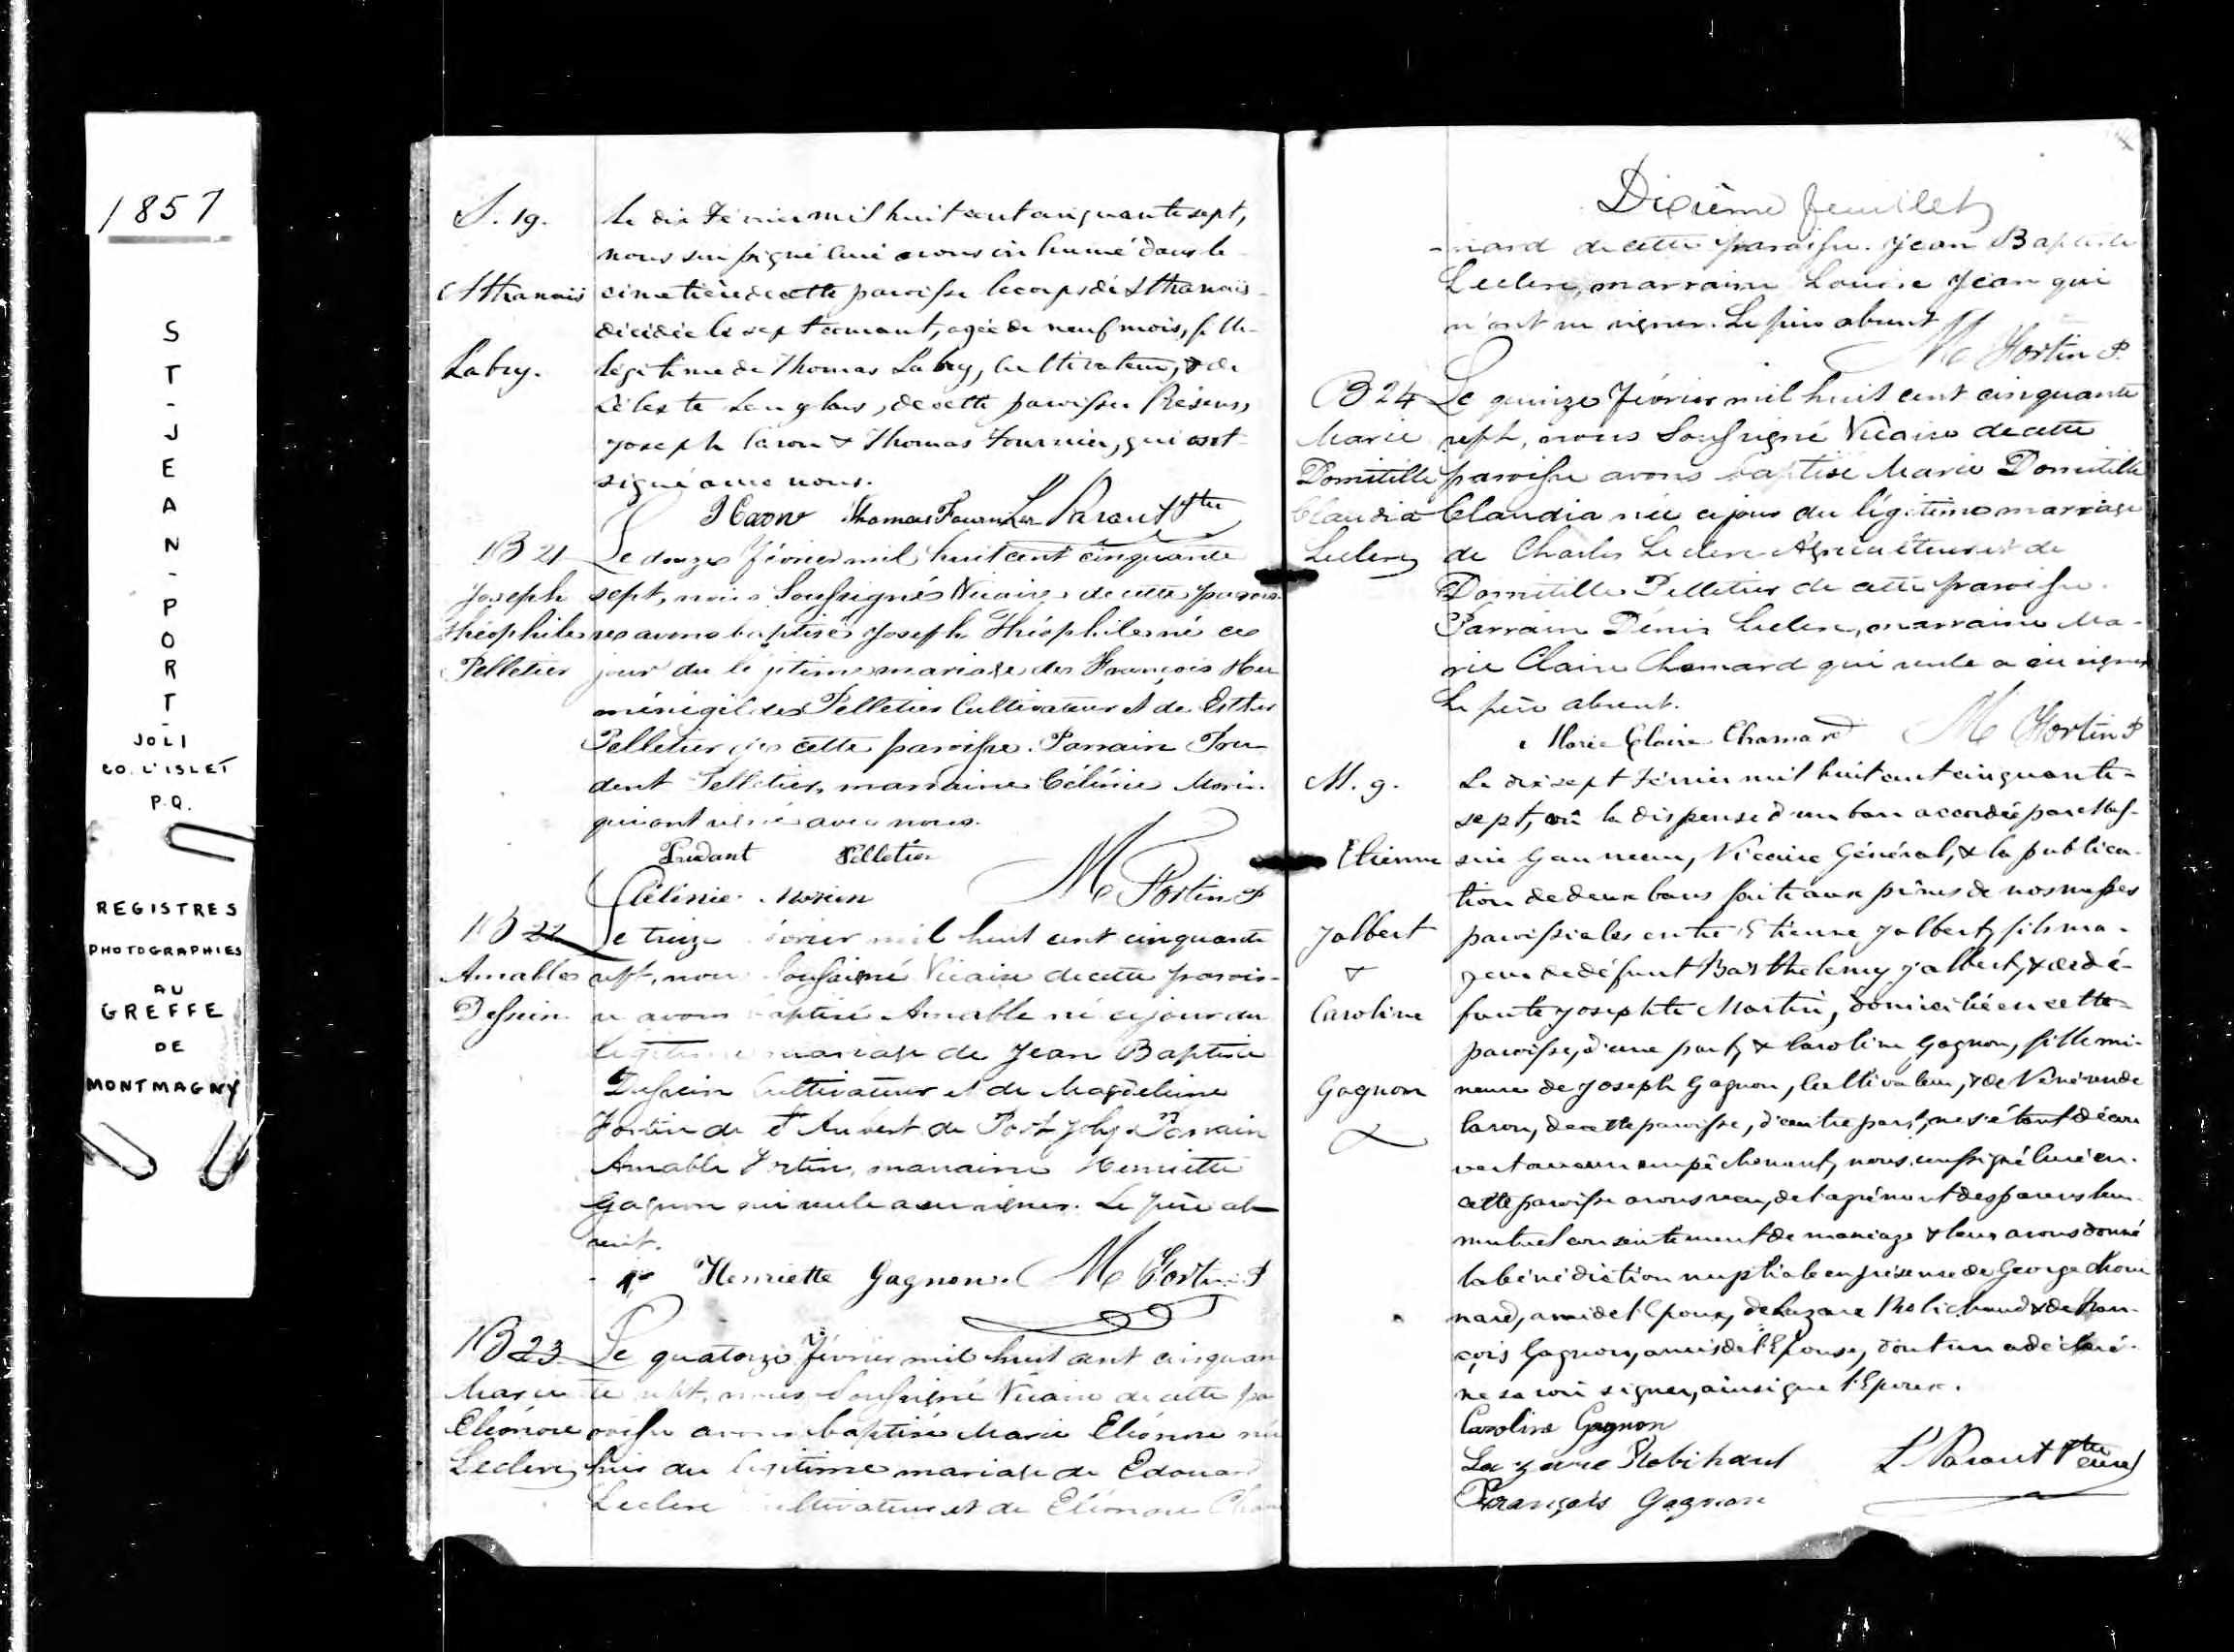 1857
ST-JEAN-PORT-
JOLI
CO. L'ISLET
P.Q.
REGISTRES
PHOTOGRAPHIES
AU
GREFFE
DE
MONTMAGNY
S. 19.
Athanais
Labry.
Le dix Février mil huit cent cinquante sept,
nous soussigné Curé avons inhumé dans le
cimetière de cette paroisse le corps de Athanais
décédée le sept courant, agée de neuf mois, fille
légitime de Thomas Labry, cultivateur, & de
Céleste Langlais, de cette paroisse Présens,
Joseph Caron & Thomas Fournier, qui ont
signé avec nous.
J Caron Thomas Fournier L. Parant Ptre
B 21
Joseph
Théophile
Pelletier
Le douze Février mil huit cent cinquante
sept, nous Soussigné Vicaire de cette parois-
se avons baptisé Joseph Théophile né ce
jour du légitime mariage de François Her
ménégilde Pelletier Cultivateur et de Esther
Pelletier de cette paroisse. Parrain Pru
dent Pelletier, marraine Célénie Morin
qui ont signé avec nous.
Prudant Pelletier
Célénie Morin M Fortin P
B 22
Amable
Dessein
Le treize février mil huit cent cinquante
sept, nous Soussigné Vicaire de cette parois-
se avons baptisé Amable né ce jour du
légitime mariage de Jean Baptiste
Dessein Cultivateur et de Magdeleine
Fortin de St Aubert de Port Joly. Parrain
Amable Fortin, marraine Henriette
Gagnon qui seule a su signer. Le père ab
sent.
Henriette Gagnon. M Fortin P
B 23
Marie
Eléonore
Leclerc
Le quatorze Février mil huit cent cinquan
te sept, nous Soussigné Vicaire de cette pa
roisse avons baptisé Marie Eléonore née
hier du légitime mariage de Edouard
Leclerc cultivateur et de Eléonore Cha
Dixième feuillet
-mard de cette paroisse. Jean Baptiste
Leclerc, marraine Louise Jean qui
n'ont su signer. Le père absent
M Fortin P.
B 24
Marie
Domitille
Claudia
Leclerc
Le quinze Février mil huit cent cinquante
sept, nous Soussigné Vicaire de cette
paroisse avons baptisé Marie Domitille
Claudia née ce jour du légitime mariage
de Charles Leclerc Agriculteur et de
Domitille Pelletier de cette paroisse.
Parrain Dénis Leclerc, marraine Ma-
rie Claire Chamard qui seule a su signer
Le père absent.
Marie Claire Chamard M Fortin P
M. 9.
Etienne
Jalbert
&
Caroline
Gagnon
Le dix sept Février mil huit cent cinquante-
sept, vû la dispense d'un ban accordée par Mes-
sire Gauvreau, Vicaire Général, & la publica-
tion de deux bans faite aux prônes de nos messes
paroissiales entre Etienne Jalbert, fils ma-
jeur de défunt Barthelemy Jalbert, & de dé-
funte Josephte Martin, domicilié en cette
paroisse, d'une part, & Caroline Gagnon, fille mi-
neure de Joseph Gagnon, Cultivateur, & de Vénérende
Caron, de cette paroisse, d'autre part, ne s'étant décou
vert aucun empêchement, nous soussigné Curé en
cette paroisse avons reçu, de l'agrément des parens leur
mutuel consentement de mariage & leur avons donné
la bénédiction nuptiale en présence de George Choui
nard, ami de l'Epoux, de Lazare Robichaud & de Fran-
çois Gagnon, amis de l'Epouse, dont un a déclaré
ne savoir signer, ainsi que l'Epoux.
Caroline Gagnon
Lazare Robihaud L. Parant Ptre
curé
François Gagnon